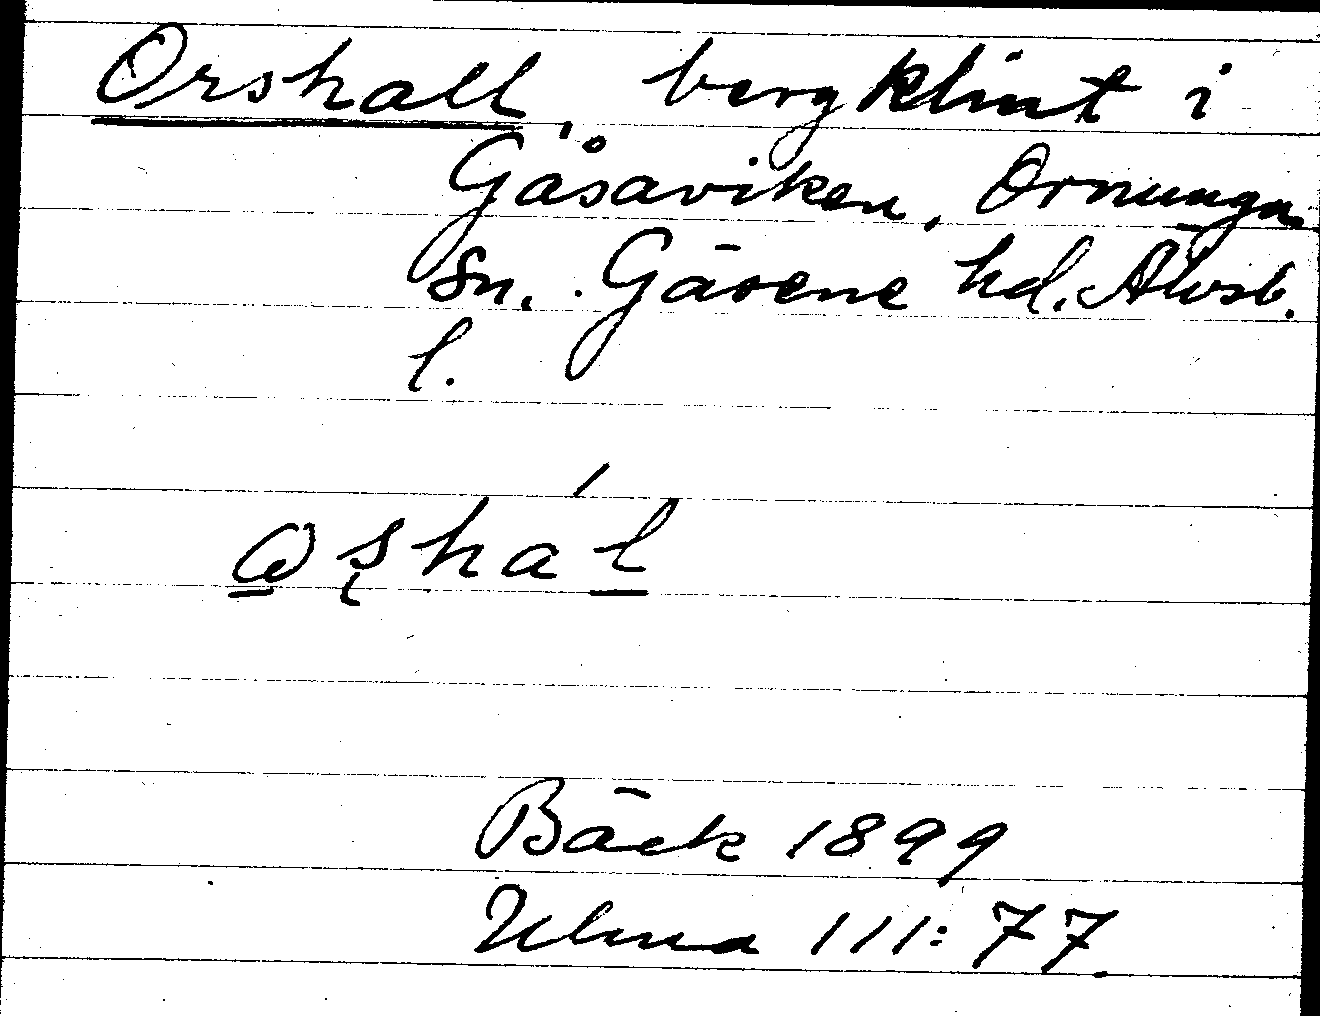 Orshall, bergklint i
Gåsaviken, Ornunga
sn. Gäsene hd. Älvsb.
l.
Bäck 1899
Ulma 111:77.